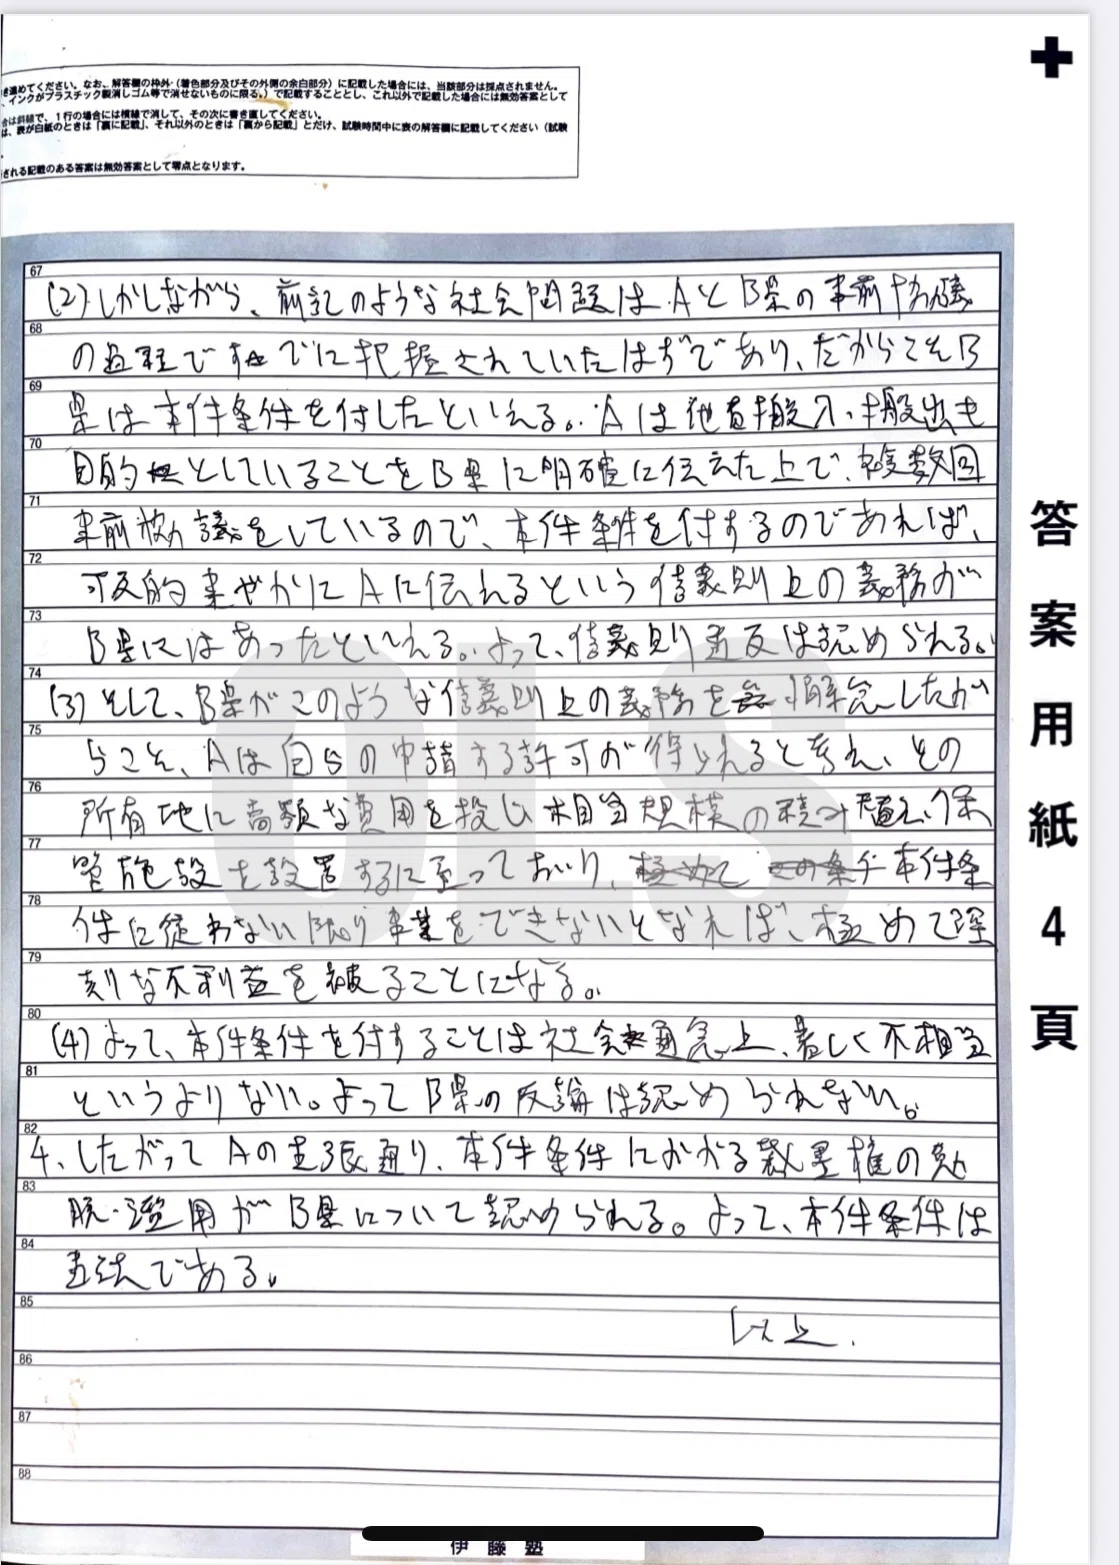 き進めてください。なお、解答欄の枠外（着色部分及びその外側の余白部分）に記載した場合には、当該部分は採点されません。
、インクがプラスチック製消しゴム等で消せないものに限る。）で記載することとし、これ以外で記載した場合には無効答案として
合は斜線で、1行の場合には横線で消して、その次に書き直してください。
は、表が白紙のときは「裏に記載」、それ以外のときは「裏から記載」とだけ、試験時間中に表の解答欄に記載してください（試験
される記載のある答案は無効答案として零点となります。
答案用紙4頁
67
(2)しかしながら、前記のような社会問題はAとB県の事前協議
68
の過程ですでに把握されていたはずであり、だからこそB
69
県は本件条件を付したといえる。Aは他者搬入・搬出も
70
目的としていることをB県に明確に伝えた上で、複数回
71
事前協議をしているので、本件条件を付するのであれば、
72
可及的速やかにAに伝えるという信義則上の義務が
73
B県にはあったといえる。よって、信義則違反は認められる。
74
(3)そして、B県がこのような信義則上の義務を懈怠したか
75
らこそ、Aは自らの申請する許可が得られると考え、その
76
所有地に高額な費用を投じ相当規模の積み替え、保
77
管施設を設置するに至っており、本件条
78
件に従わない限り事業をできないとなれば、極めて深
79
刻な不利益を被ることになる。
80
(4)よって、本件条件を付することは社会通念上、著しく不相当
81
というよりない。よってB県の反論は認められない。
82
4、したがってAの主張通り、本件条件にかかる裁量権の逸
83
脱・濫用がB県について認められる。よって、本件条件は
84
違法である。
85
以上.
86
87
88
OLS
伊藤塾